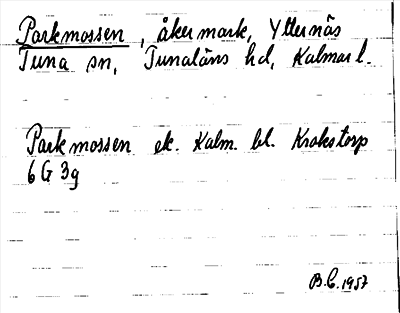 Parkmossen, åkermark, Ytternäs
Tuna sn, Tunaläns hd, Kalmar l.
Parkmossen ek. Kalm. bl. Krokstorp
6 G 3g
B.C. 1957